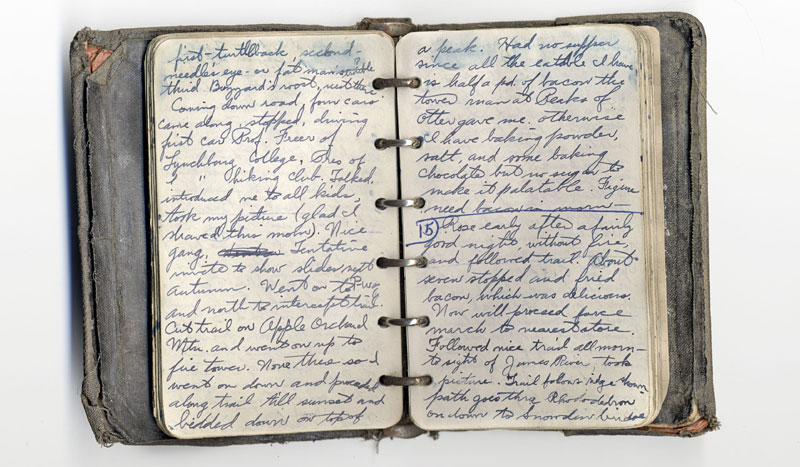 first - turtleback, second -
needles eye - or fat man's
third Buzzard's roost, rest there
Coming down road, four cars
came along, stopped, driving
first car Prof. Freer of
Lynchburg College, Pres of
" " hiking club. Talked.
introduced me to all kids,
took my picture (glad I
shaved this morn). Nice
gang, Tentative
invite to show slides next
autumn. Went on to P-way
and north to intercept trail.
Cut trail on Apple Orchard
Mtn. and went on up to
fire tower. None there so I
went on down and proceeded
along trail till sunset and
bedded down on top of
a peak. Had no supper
since all the eatible I have
is half a pd. of bacon the
tower man at Peaks of
Otter gave me. otherwise
I have baking powder,
salt, and some baking
chocolate but no sugar to
make it palatable. Figure
need bacon in morn -
15 Rose early after a fairly
good night without fire,
and followed trail. About
seven stopped and fried
bacon, which was delicious.
Now will proceed force
march to nearest store.
Followed nice trail all morn -
to sight of James River - took
picture. Trail follows ridge down
path goes thru Rhododendron
on down to Snowden bridge